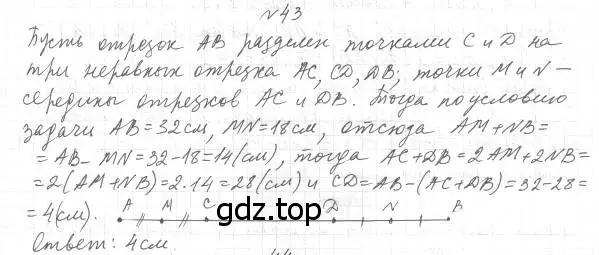 №43
Пусть отрезок AB разделен точками C и D на
три неравных отрезка AC, CD, DB; точки M и N –
середины отрезков AC и DB. Тогда по условию
задачи AB=32см, MN=18см, отсюда AM+NB=
=AB-MN=32-18=14(см), тогда AC+DB=2AM+2NB=
=2(AM+NB)=2·14=28(см) и CD=AB-(AC+DB)=32-28=
=4(см). A M C D N B
gdz.top
Ответ: 4см.